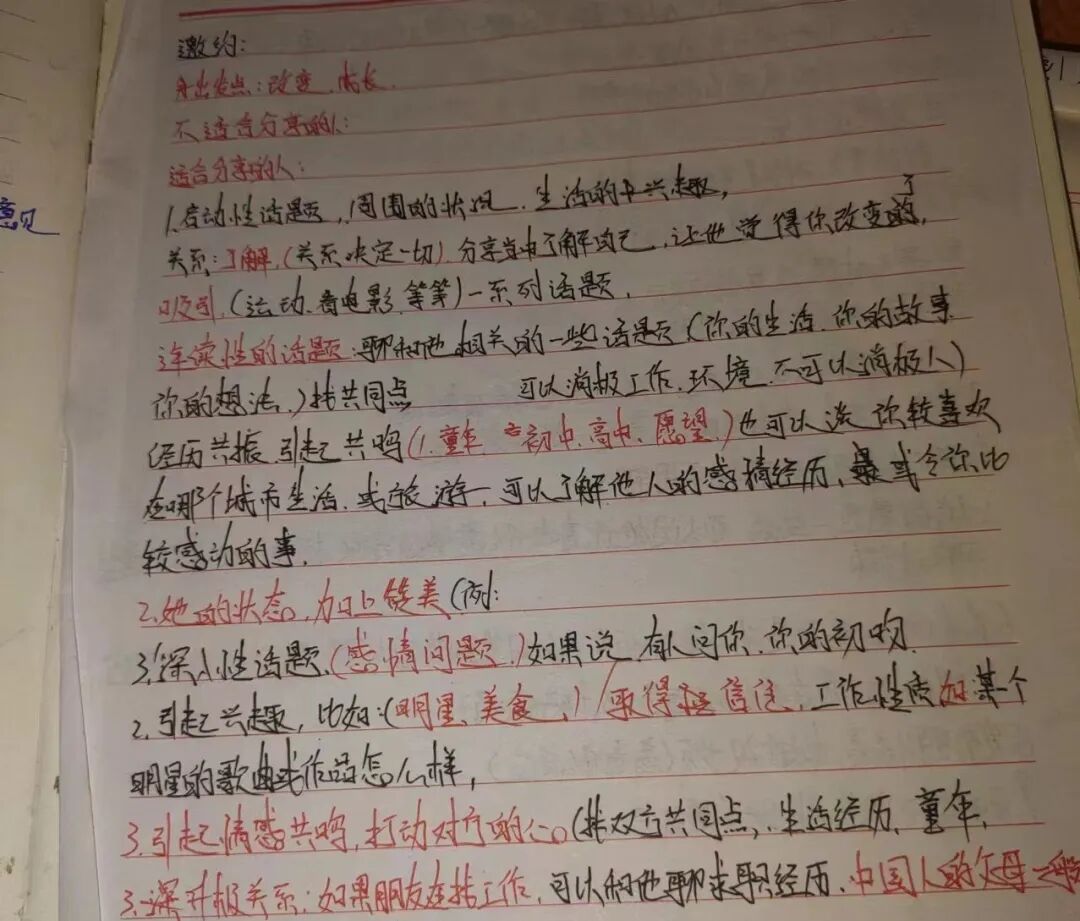 邀约:
出发点:改变.成长.
不适合分享的人:
适合分享的人:
1.启动性话题,周围的状况.生活的兴趣,
了
关系:了解,(关系决定一切)分享自己了解自己,让他觉得你改变的,
吸引.(运动.看电影.等等)一系列话题.
意见
连续性的话题:聊和他相关的一些话题(你的生活.你的故事
你的想法.)找共同点 可以消极工作.环境.不可以消极人)
经历共振.引起共鸣(1.童年 初中.高中.愿望.)也可以谈你较喜欢
在哪个城市生活.或旅游.可以了解他人的感情经历,或令你比
较感动的事.
2.她的状态。加以赞美(例:
3.深入性话题.(感情问题.)如果说.有人问你.你的初吻.
2.引起兴趣,比如:(明星.美食.)/取得信任.工作性质如某个
明星的歌曲或作品怎么样,
3.引起情感共鸣,打动对方的心。(找双方共同点,.生活经历.童年.
3.深升级关系:如果朋友在找工作,可以和他聊求职经历.中国人的父母一般